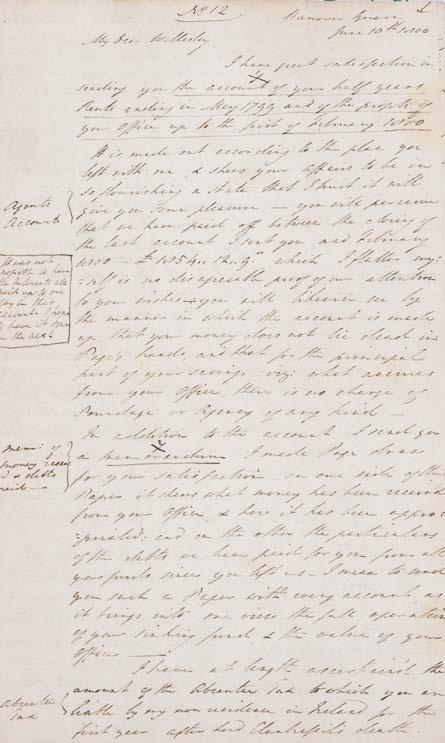 No 12
Hanover Square
June 10th 1800
My Dear Wellesley
I have great satisfaction in
sending you the account of your half years
Rents ending in May 1799 and of the profits of
your Office up to the first of February 1800
It is made out according to the plan you
left with me, & shews your affairs to be in
so flourishing a State that I trust it will
give you some pleasure — you will perceive
that we have paid off between the closing of
the last account I sent you and February
1800 —
which I flatter my=
=self is no disagreeable proof of your attention
to your wishes
you will observe
by
the manner in which the account is made
up that your money does not lie dead in
Page's hands, and that for the principal
part of your savings — viz: what accrues
from your Office, there is no charge of
Poundage or Agency of any kind —
Agents
Account
It was not
possible to have
the Interests all
paid up to one
day in this
account I hope
to have it so
in the next
In addition to the account I send you
a memorandum I made Page draw
for your satisfaction on one side of the
Paper it shews what money has been received
from your Office, & how it has been appro=
=priated; and on the other the particulars
of the debts we have paid for you from all
your funds since you left us — I mean to send
you such a Paper with every account as
it brings into one view the full operation
of your sinking fund & the value of your
Office —
mem: of
money receiv
d & debts
paid —
I have at length ascertained the
amount of the Absentee Tax to which you are
liable by my non residence in Ireland for the
first year after Lord Clanbrassil's death.
Absentee
Tax